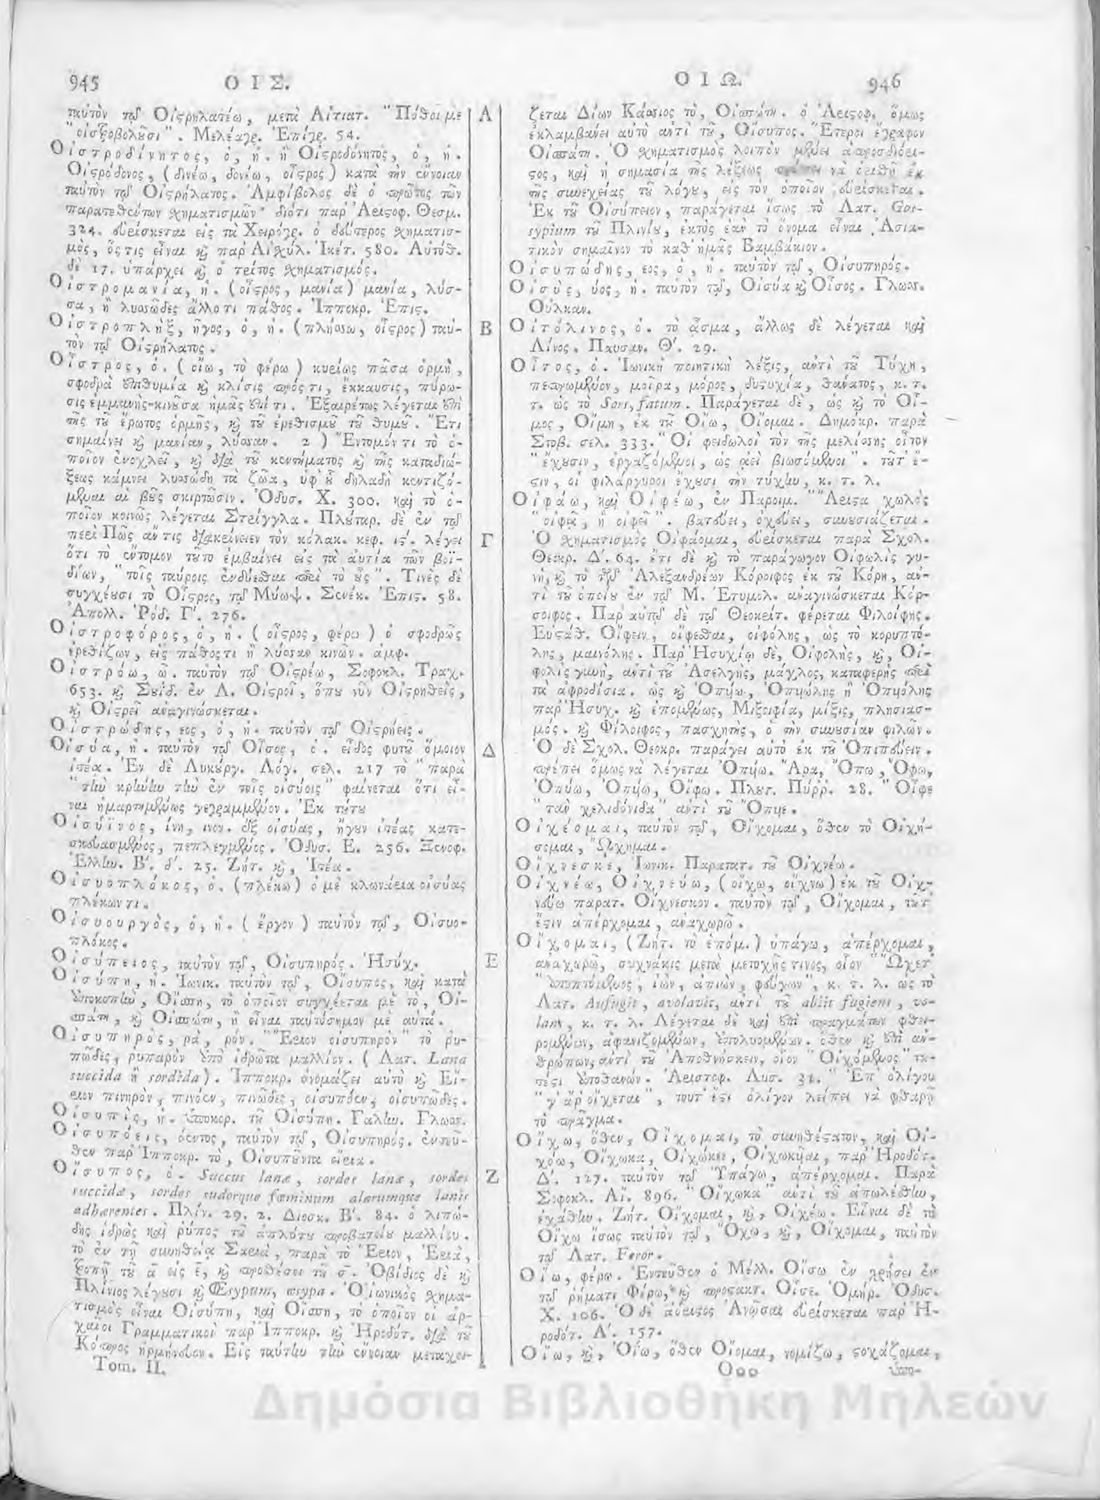 945 ΟΙΣ.
ταὐτὸν τῷ Οἰστρηλατέω, μετὰ Αἰτιατ. "Πόθοι με
"οἰστροβολοῦσι". Μελέαγρ. Ἐπίγρ. 54.
Οἰστροδίνητος, ὁ, ἡ. ἢ Οἰστροδόνητος, ὁ, ἡ.
Οἰστρόδονος, (δινέω, δονέω, οἶστρος) κατὰ τὴν ἔννοιαν
ταὐτὸν τῷ Οἰστρήλατος. Ἀμφίβολος δὲ ὁ πρῶτος τῶν
παρατεθέντων σχηματισμῶν· διότι παρ' Ἀριστοφ. Θεσμ.
324. εὑρίσκεται εἰς τὰ Χειρόγρ. ὁ δεύτερος σχηματισ-
μὸς, ὅςτις εἶναι καὶ παρ' Αἰσχύλ. Ἱκέτ. 580. Αὐτόθ.
δὲ 17. ὑπάρχει καὶ ὁ τρίτος σχηματισμός.
Οἰστρομανία, ἡ. (οἶστρος, μανία) μανία, λύσ-
σα, ἢ λυσσῶδες ἄλλο τι πάθος. Ἱπποκρ. Ἐπις.
Οἰστροπλὴξ, ῆγος, ὁ, ἡ. (πλήσσω, οἶστρος) ταὐ-
τὸν τῷ Οἰστρήλατος.
Οἶστρος, ὁ. (οἴω, τὸ φέρω) κυρίως πᾶσα ὁρμὴ,
σφοδρὰ ἐπιθυμία καὶ κλίσις πρός τι, ἔκκαυσις, πύρω-
σις ἐμμανὴς κινοῦσα ἡμᾶς ἐπί τι. Ἐξαιρέτως λέγεται ἐπὶ
τῆς τοῦ ἔρωτος ὁρμῆς, καὶ τοῦ ἐρεθισμοῦ τοῦ θυμοῦ. Ἔτι
σημαίνει καὶ μανίαν, λύσσαν. 2) Ἔντομόν τι τὸ ὁ-
ποῖον ἐνοχλεῖ, καὶ διὰ τοῦ κεντήματος καὶ τῆς καταδιώ-
ξεως κάμνει λυσσώδη τὰ ζῶα, ὑφ' οὗ δηλαδὴ κεντιζό-
μεναι αἱ βοῦς σκιρτῶσιν. Ὀδυσ. Χ. 300. καὶ τὸ ὁ-
ποῖον κοινῶς λέγεται Στρίγγλα. Πλούταρ. δὲ ἐν τῷ
περὶ Πῶς ἄν τις διακρίνειεν τὸν κόλακ. κεφ. ις'. λέγει
ὅτι τὸ ἔντομον τοῦτο ἐμβαίνει εἰς τὰ αὐτία τῶν βοϊ-
δίων, "τοῖς ταύροις ἐνδύεσθαι περὶ τὸ οὖς". Τινὲς δὲ
συγχέουσι τὸ Οἶστρος, τῷ Μύωψ. Σενέκ. Ἐπις. 58.
Ἀπολλ. Ῥόδ. Γ'. 276.
Οἰστροφόρος, ὁ, ἡ. (οἶστρος, φέρω) ὁ σφοδρῶς
ἐρεθίζων, εἰς πάθος τι ἢ λύσσαν κινῶν. ἀμφ.
Οἰστρόω, ῶ. ταὐτὸν τῷ Οἰστρέω, Σοφοκλ. Τραχ.
653. καὶ Σουΐδ. ἐν Λ. Οἰστροῖ, ὅπου νῦν Οἰστρηθεὶς,
καὶ Οἰστρεῖ ἀναγινώσκεται.
Οἰστρώδης, εος, ὁ, ἡ. ταὐτὸν τῷ Οἰστρήεις.
Οἰσύα, ἡ. ταὐτὸν τῷ Οἶσος, ὁ. εἶδος φυτοῦ ὅμοιον
ἰτέα. Ἐν δὲ Λυκούργ. Λόγ. σελ. 217 τὸ "παρὰ
"τὴν κρήνην τὴν ἐν τοῖς οἰσύοις" φαίνεται ὅτι εἶ-
ναι ἡμαρτημένως γεγραμμένον. Ἐκ τούτου
Οἰσύϊνος, ίνη, ινον. ἐξ οἰσύας, ἤγουν ἰτέας κατε-
σκευασμένος, πεπλεγμένος. Ὀδυσ. Ε. 256. Ξενοφ.
Ἑλλην. Β'. δ'. 25. Ζήτ. καὶ, Ἰτέα.
Οἰσυοπλόκος, ὁ. (πλέκω) ὁ μὲ κλωνάρια οἰσύας
πλέκων τι.
Οἰσυουργὸς, ὁ, ἡ. (ἔργον) ταὐτὸν τῷ, Οἰσυο-
πλόκος.
Οἰσύπειος, ταὐτὸν τῷ, Οἰσυπηρός. Ἡσύχ.
Οἰσύπη, ἡ. Ἰωνικ. ταὐτὸν τῷ, Οἴσυπος, καὶ κατὰ
ὑποκοπὴν, Οἴσπη, τὸ ὁποῖον συγχέεται μὲ τὸ, Οἰ-
σπάτη, καὶ Οἰσπώτη, ἢ εἶναι ταὐτόσημον μὲ αὐτά.
Οἰσυπηρὸς, ρὰ, ρόν. "Ἔριον οἰσυπηρὸν" τὸ ῥυ-
πῶδες, ῥυπαρὸν ὑπὸ ἱδρῶτα μαλλίον. (Λατ. Lana
succida ἢ sordida). Ἱπποκρ. ὀνομάζει αὐτὸ καὶ Εἴ-
ριον πινηρὸν, πινόεν, πινῶδες, οἰσυπόεν, οἰσυπῶδες.
Οἰσυπὶς, ἡ. ὑποκορ. τοῦ Οἰσύπη. Γαλην. Γλωσσ.
Οἰσυπόεις, όεντος, ταὐτὸν τῷ, Οἰσυπηρός. ἐντεῦ-
θεν παρ' Ἱπποκρ. τὸ, Οἰσυποῦντα εἴρια.
Οἴσυπος, ὁ. Succus lanæ, sordes lanæ, sordes
succidæ, sordes sudorque feminum alarumque lanis
adhærentes. Πλίν. 29. 2. Διοσκ. Β'. 84. ὁ λιπώ-
δης ἱδρὼς καὶ ῥύπος τοῦ ἀπλύτου προβατείου μαλλίου.
τὸ ἐν τῇ συνηθείᾳ Σαριὰ, παρὰ τὸ Ἔριον, Ἐριὰ,
τροπῇ τοῦ α εἰς ε, καὶ προθέσει τοῦ σ. Ὀβίδιος δὲ καὶ
Πλίνιος λέγουσι καὶ Œsypum, œsypa. Ὁ Ἰωνικὸς σχημα-
τισμὸς εἶναι Οἰσύπη, καὶ Οἴσπη, τὸ ὁποῖον οἱ ἀρ-
χαῖοι Γραμματικοὶ παρ' Ἱπποκρ. καὶ Ἡροδότ. διὰ τοῦ
Κόπρος ἡρμήνευον. Εἰς ταύτην τὴν ἔννοιαν μεταχει-
Tom. II.
Α
Β
Γ
Δ
Ε
Ζ
ΟΙΩ. 946
ζεται Δίων Κάσσιος τὸ, Οἰσπώτη. ὁ Ἀριστοφ. ὅμως
ἐκλαμβάνει αὐτὸ ἀντὶ τοῦ, Οἴσυπος. Ἕτεροι ἔγραφον
Οἰσπάτη. Ὁ σχηματισμὸς λοιπὸν μένει ἀπροσδιόρι-
στος, καὶ ἡ σημασία τῆς λέξεως πρέπει νὰ κριθῇ ἐκ
τῆς συνεχείας τοῦ λόγου, εἰς τὸν ὁποῖον εὑρίσκεται.
Ἐκ τοῦ Οἰσύπειον, παράγεται ἴσως τὸ Λατ. Gos-
sypium τοῦ Πλινίου, ἐκτὸς ἐὰν τὸ ὄνομα εἶναι Ἀσια-
τικὸν σημαῖνον τὸ καθ' ἡμᾶς Βαμβάκιον.
Οἰσυπώδης, εος, ὁ, ἡ. ταὐτὸν τῷ, Οἰσυπηρός.
Οἰσὺς, ύος, ἡ. ταὐτὸν τῷ, Οἰσύα καὶ Οἶσος. Γλωσσ.
Οὐλκαν.
Οἰτόλινος, ὁ. τὸ ᾆσμα, ἄλλως δὲ λέγεται καὶ
Λίνος. Παυσαν. Θ'. 29.
Οἶτος, ὁ. Ἰωνικὴ ποιητικὴ λέξις, ἀντὶ τοῦ Τύχη,
πεπρωμένον, μοῖρα, μόρος, δυστυχία, θάνατος, κ. τ.
τ. ὡς τὸ Sors, fatum. Παράγεται δὲ, ὡς καὶ τὸ Οἶ-
μος, Οἴμη, ἐκ τοῦ Οἴω, Οἴομαι. Δημόκρ. παρὰ
Στοβ. σελ. 333. "Οἱ φειδωλοὶ τὸν τῆς μελίσσης οἶτον
"ἔχουσιν, ἐργαζόμενοι, ὡς ἀεὶ βιωσόμενοι". τοῦτ' ἔ-
στιν, οἱ φιλάργυροι ἔχουσι τὴν τύχην, κ. τ. λ.
Οἰφάω, καὶ Οἰφέω, ἐν Παροιμ. "Ἄριστα χωλὸς
"οἰφᾷ, ἢ οἰφεῖ". βατεύει, ὀχεύει, συνουσιάζεται.
Ὁ σχηματισμὸς Οἰφάομαι, εὑρίσκεται παρὰ Σχολ.
Θεοκρ. Δ'. 64. ἔτι δὲ καὶ τὸ παράγωγον Οἰφωλὶς γυ-
νὴ, καὶ τὸ τῶν Ἀλεξανδρέων Κόροιφος ἐκ τοῦ Κόρη, ἀν-
τὶ τοῦ ὁποίου ἐν τῷ Μ. Ἐτυμολ. ἀναγινώσκεται Κόρ-
σοιφος. Παρ' αὐτῷ δὲ τῷ Θεοκρίτ. φέρεται Φιλοίφης.
Εὐστάθ. Οἴφειν, οἴφεσθαι, οἰφόλης, ὡς τὸ κορυπτό-
λης, μαινόλης. Παρ' Ἡσυχίῳ δὲ, Οἰφολὴς, καὶ, Οἰ-
φολὶς γυνὴ, ἀντὶ τοῦ Ἀσελγὴς, μάχλος, καταφερὴς περὶ
τὰ ἀφροδίσια. ὡς καὶ Ὀπύω, Ὀπυώλης ἢ Ὀπυόλης
παρ' Ἡσυχ. καὶ ἑπομένως, Μιξοιφία, μίξις, πλησιασ-
μός. καὶ Φίλοιφος, πασχητὴς, ὁ τὴν συνουσίαν φιλῶν.
Ὁ δὲ Σχολ. Θεοκρ. παράγει αὐτὸ ἐκ τοῦ Ὀπιπεύειν.
πρέπει ὅμως νὰ λέγεται Ὀπύω. Ἄρα, Ὄπω, Ὄφω,
Ὀπύω, Ὀπυίω, Οἴφω. Πλουτ. Πύρρ. 28. "Οἶφε
"τὰν χελιδονίδα" ἀντὶ τοῦ Ὄπυε.
Οἰχέομαι, ταὐτὸν τῷ, Οἴχομαι, ὅθεν τὸ Οἰχή-
σομαι, Ὤχημαι.
Οἴχνεσκε, Ἰωνικ. Παρατατ. τοῦ Οἰχνέω.
Οἰχνέω, Οἰχνεύω, (οἴχω, οἴχνω) ἐκ τοῦ Οἰχ-
νεύω παρατ. Οἴχνεσκον. ταὐτὸν τῷ, Οἴχομαι, τοῦτ'
ἔστιν ἀπέρχομαι, ἀναχωρῶ.
Οἴχομαι, (Ζήτ. τὸ ἑπόμ.) ὑπάγω, ἀπέρχομαι,
ἀναχωρῶ, συχνάκις μετὰ μετοχῆς τινος, οἷον "ᾬχετ'
"ἀποπτάμενος, ἰὼν, ἀπιὼν, φεύγων", κ. τ. λ. ὡς τὸ
Λατ. Aufugit, avolavit, ἀντὶ τοῦ abiit fugiens, vo-
lans, κ. τ. λ. Λέγεται δὲ καὶ ἐπὶ πραγμάτων φθει-
ρομένων, ἀφανιζομένων, ἀπολυομένων. ὅθεν καὶ ἐπὶ ἀν-
θρώπων, ἀντὶ τοῦ Ἀποθνήσκειν, οἷον "Οἰχόμενος" τε-
πέστι ἀποθανών. Ἀριστοφ. Λυσ. 31. "Ἐπ' ὀλίγου
"γ' ἂρ' οἴχεται", τουτ' ἔστι ὀλίγον λείπει νὰ φθαρῇ
τὸ πρᾶγμα.
Οἴχω, ὅθεν, Οἴχομαι, τὸ συνηθέστατον, καὶ Οἰ-
χόω, Οἴχωκα, Οἰχώκεε, Οἴχωκηαι, παρ' Ἡροδότ.
Δ'. 127. ταὐτὸν τῷ Ὑπάγω, ἀπέρχομαι. Παρὰ
Σοφοκλ. Αἴ. 896. "Οἴχωκα" ἀντὶ τοῦ ἀπωλέσθην,
ἐχάθην. Ζήτ. Οἴχομαι, καὶ, Οἰχέω. Εἶναι δὲ τὸ
Οἴχω ἴσως ταὐτὸν τῷ, Ὄχω, καὶ, Οἴχομαι, ταὐτὸν
τῷ Λατ. Feror.
Οἴω, φέρω. Ἐντεῦθεν ὁ Μέλλ. Οἴσω ἐν χρήσει ἐν
τῷ ῥήματι Φέρω, καὶ προςτακτ. Οἶσε. Ὁμηρ. Ὀδυσ.
Χ. 106. Ὁ δὲ ἀόριστος Ἀνῷσαι εὑρίσκεται παρ' Ἡ-
ροδότ. Α'. 157.
Οἴω, καὶ, Ὀΐω, ὅθεν Οἴομαι, νομίζω, στοχάζομαι,
Οοο ὑπο-
Δημόσια Βιβλιοθήκη Μηλεών